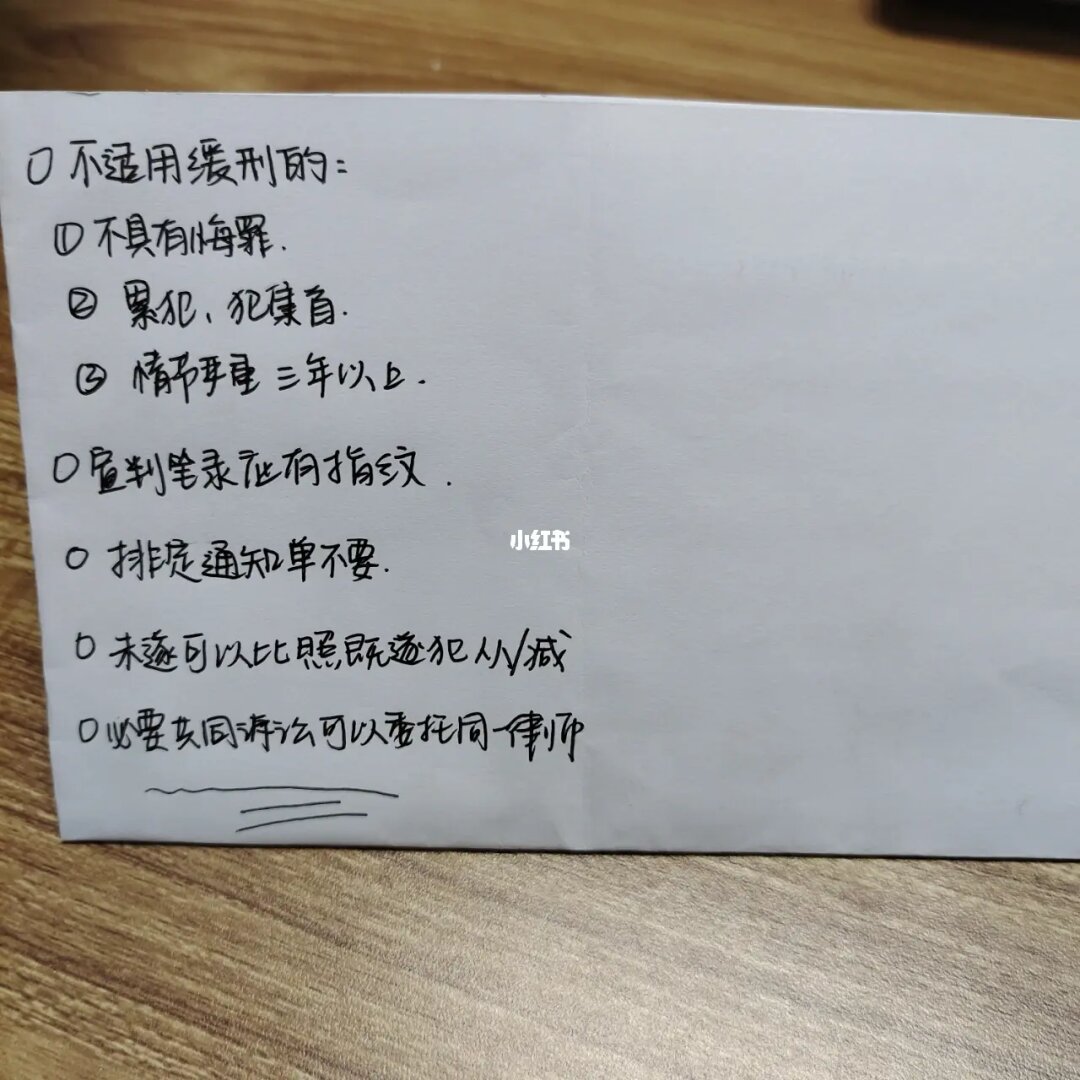 ○ 不适用缓刑的:
① 不具有悔罪.
② 累犯、犯集首.
③ 情节严重 三年以上.
○ 宣判笔录应有指纹.
○ 排定通知单不要.
○ 未遂可以比照既遂犯从/减
○ 必要共同诉讼可以委托同一律师
小红书